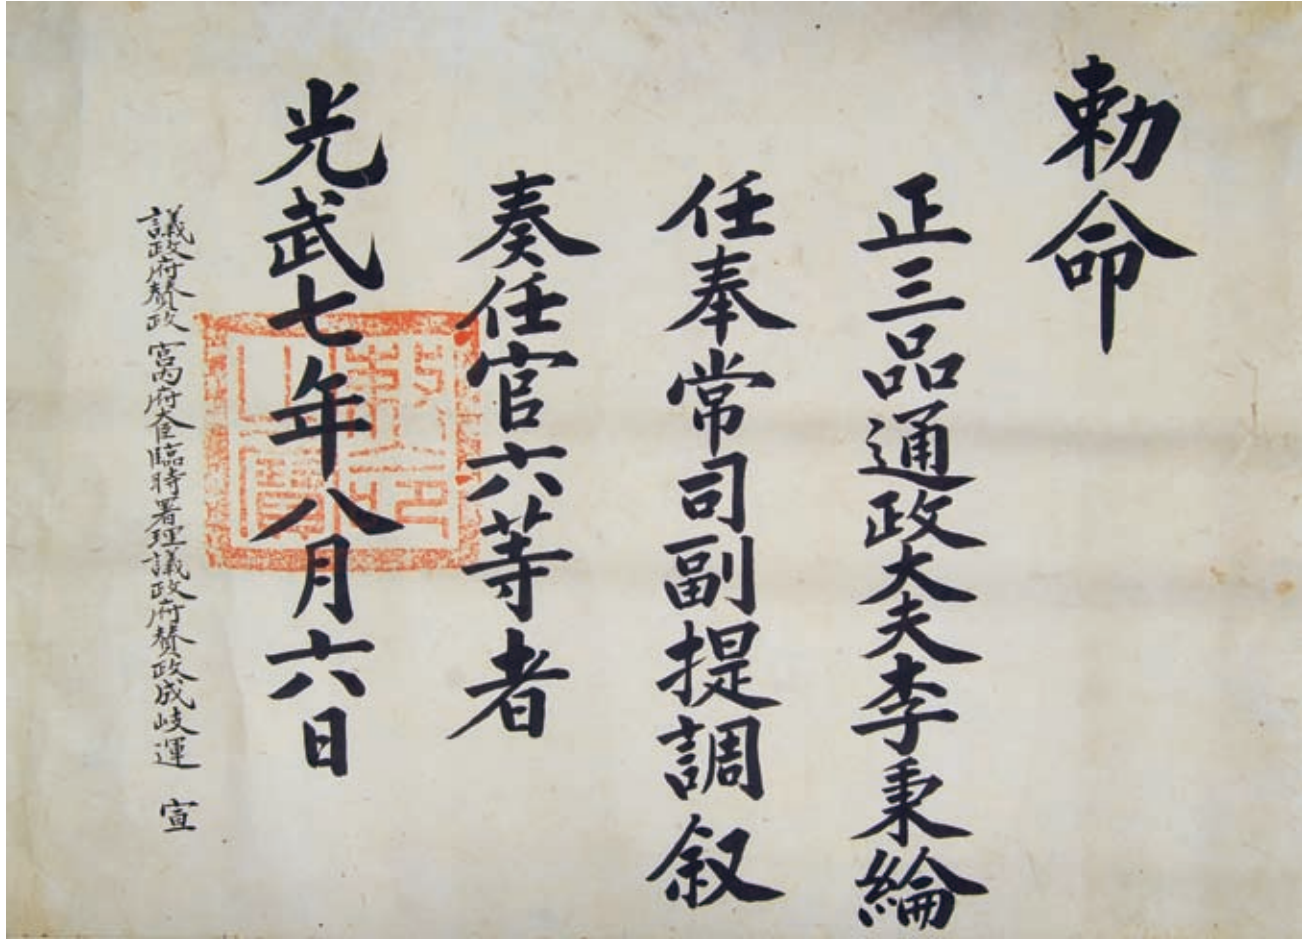 勅命
正三品通政大夫李秉綸
任奉常司副提調叙
奏任官六等者
光武七年八月六日
議政府贊政宮內府大臣臨時署理議政府贊政成岐運 宣
勅命之寶